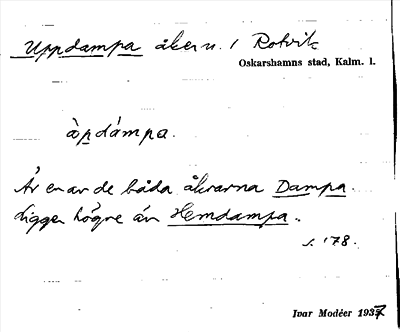 Uppdampa åkern. i Rotvik
Oskarshamns stad, Kalm. l.
àpdámpa.
Är en av de båda åkrarna Dampa.
Ligger högre än Hemdampa.
s. 178.
Ivar Modéer 1937